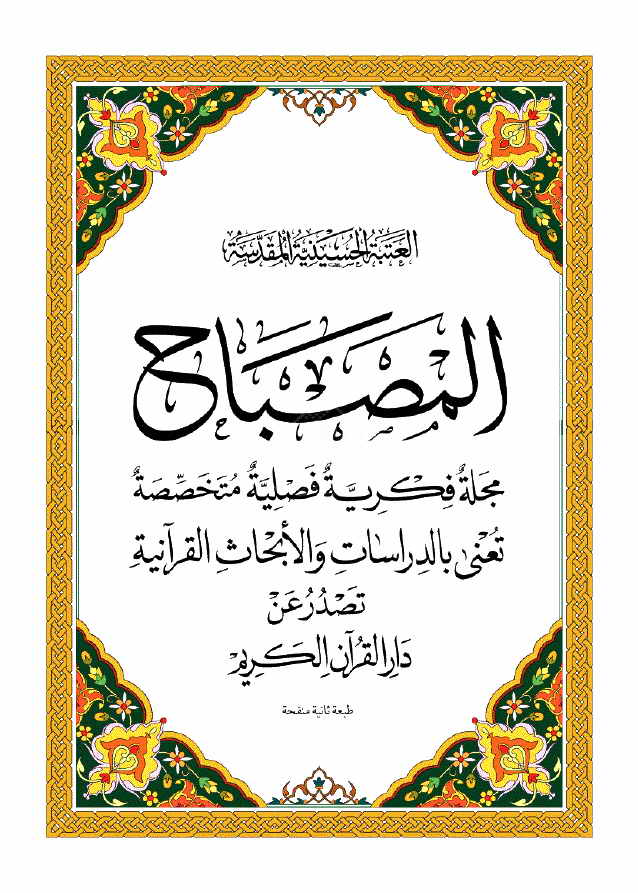 العتبة الحسينية المقدسة
المصباح
مجلة فكرية فصلية متخصصة
تعنى بالدراسات والأبحاث القرآنية
تصدر عن
دار القرآن الكريم
طبعة ثانية منقحة